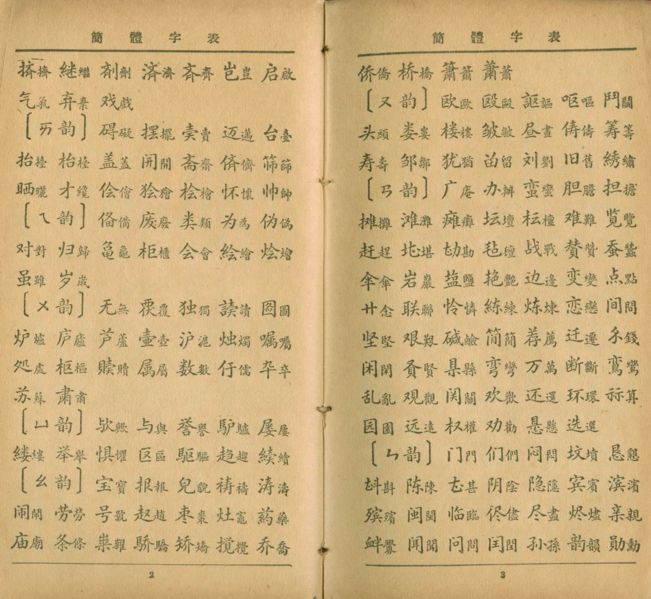 簡體字表
挤擠 继繼 剂劑 济濟 斉齊 岂豈 启啟
气氣 弃棄 戏戲
〔ㄞ韵〕 碍礙 摆擺 卖賣 迈邁 台臺
抬擡 枱檯 盖蓋 开開 斋齋 侪儕 筛篩
晒曬 才纔 侩儈 狯獪 桧檜 怀懷 帅帥
〔ㄟ韵〕 俻備 废廢 类類 为為 伪偽
对對 归歸 龟龜 柜櫃 会會 絵繪 烩燴
虽雖 岁歲
〔ㄨ韵〕 无無 覆 独獨 読讀 图圖
炉爐 庐廬 芦蘆 壶壺 沪滬 烛燭 嘱囑
処處 枢樞 赎贖 属屬 数數 伃儒 卒
苏蘇 肃肅
〔ㄩ韵〕 欤歟 与與 誉譽 驴驢 屡屢
缕縷 举舉 惧懼 区區 驱驅 趋趨 続續
〔ㄠ韵〕 宝寶 报報 皃貌 祷禱 涛濤
闹鬧 劳勞 号號 赵趙 枣棗 灶竈 药藥
庙廟 条條 巢 骄驕 矫矯 搅攪 乔喬
2
簡體字表
侨僑 桥橋 箫簫 萧蕭
〔ㄡ韵〕 欧歐 殴毆 謳 呕嘔 鬥鬭
头頭 娄婁 楼樓 皱皺 昼晝 俦儔 筹籌
寿壽 邹鄒 犹猶 留 刘劉 旧舊 绣繡
〔ㄢ韵〕 广庵 办辦 蛮蠻 胆膽 担擔
摊攤 滩灘 瘫癱 坛壇 枟檀 难難 览覽
赶趕 堪 勘 毡氈 战戰 赞贊 蚕蠶
伞傘 岩巖 盐鹽 艳艷 边邊 变變 点點
廿念 联聯 怜憐 練 炼煉 恋戀 间間
坚堅 艰艱 碱鹼 简簡 荐薦 迁遷 錢
闲閑 贤賢 县縣 弯彎 万萬 断斷 鸾鸞
乱亂 观觀 関關 欢歡 还還 环環 祘算
园園 远遠 权權 劝勸 悬懸 选選
〔ㄣ韵〕 门門 们們 问問 坟墳 恳懇
斟 陈陳 甚 阴陰 隐隱 宾賓 滨濱
殡殯 闽閩 临臨 侭儘 尽盡 烬燼 亲親
衅釁 闻聞 问問 闰閏 孙孫 韵韻 勋勳
3